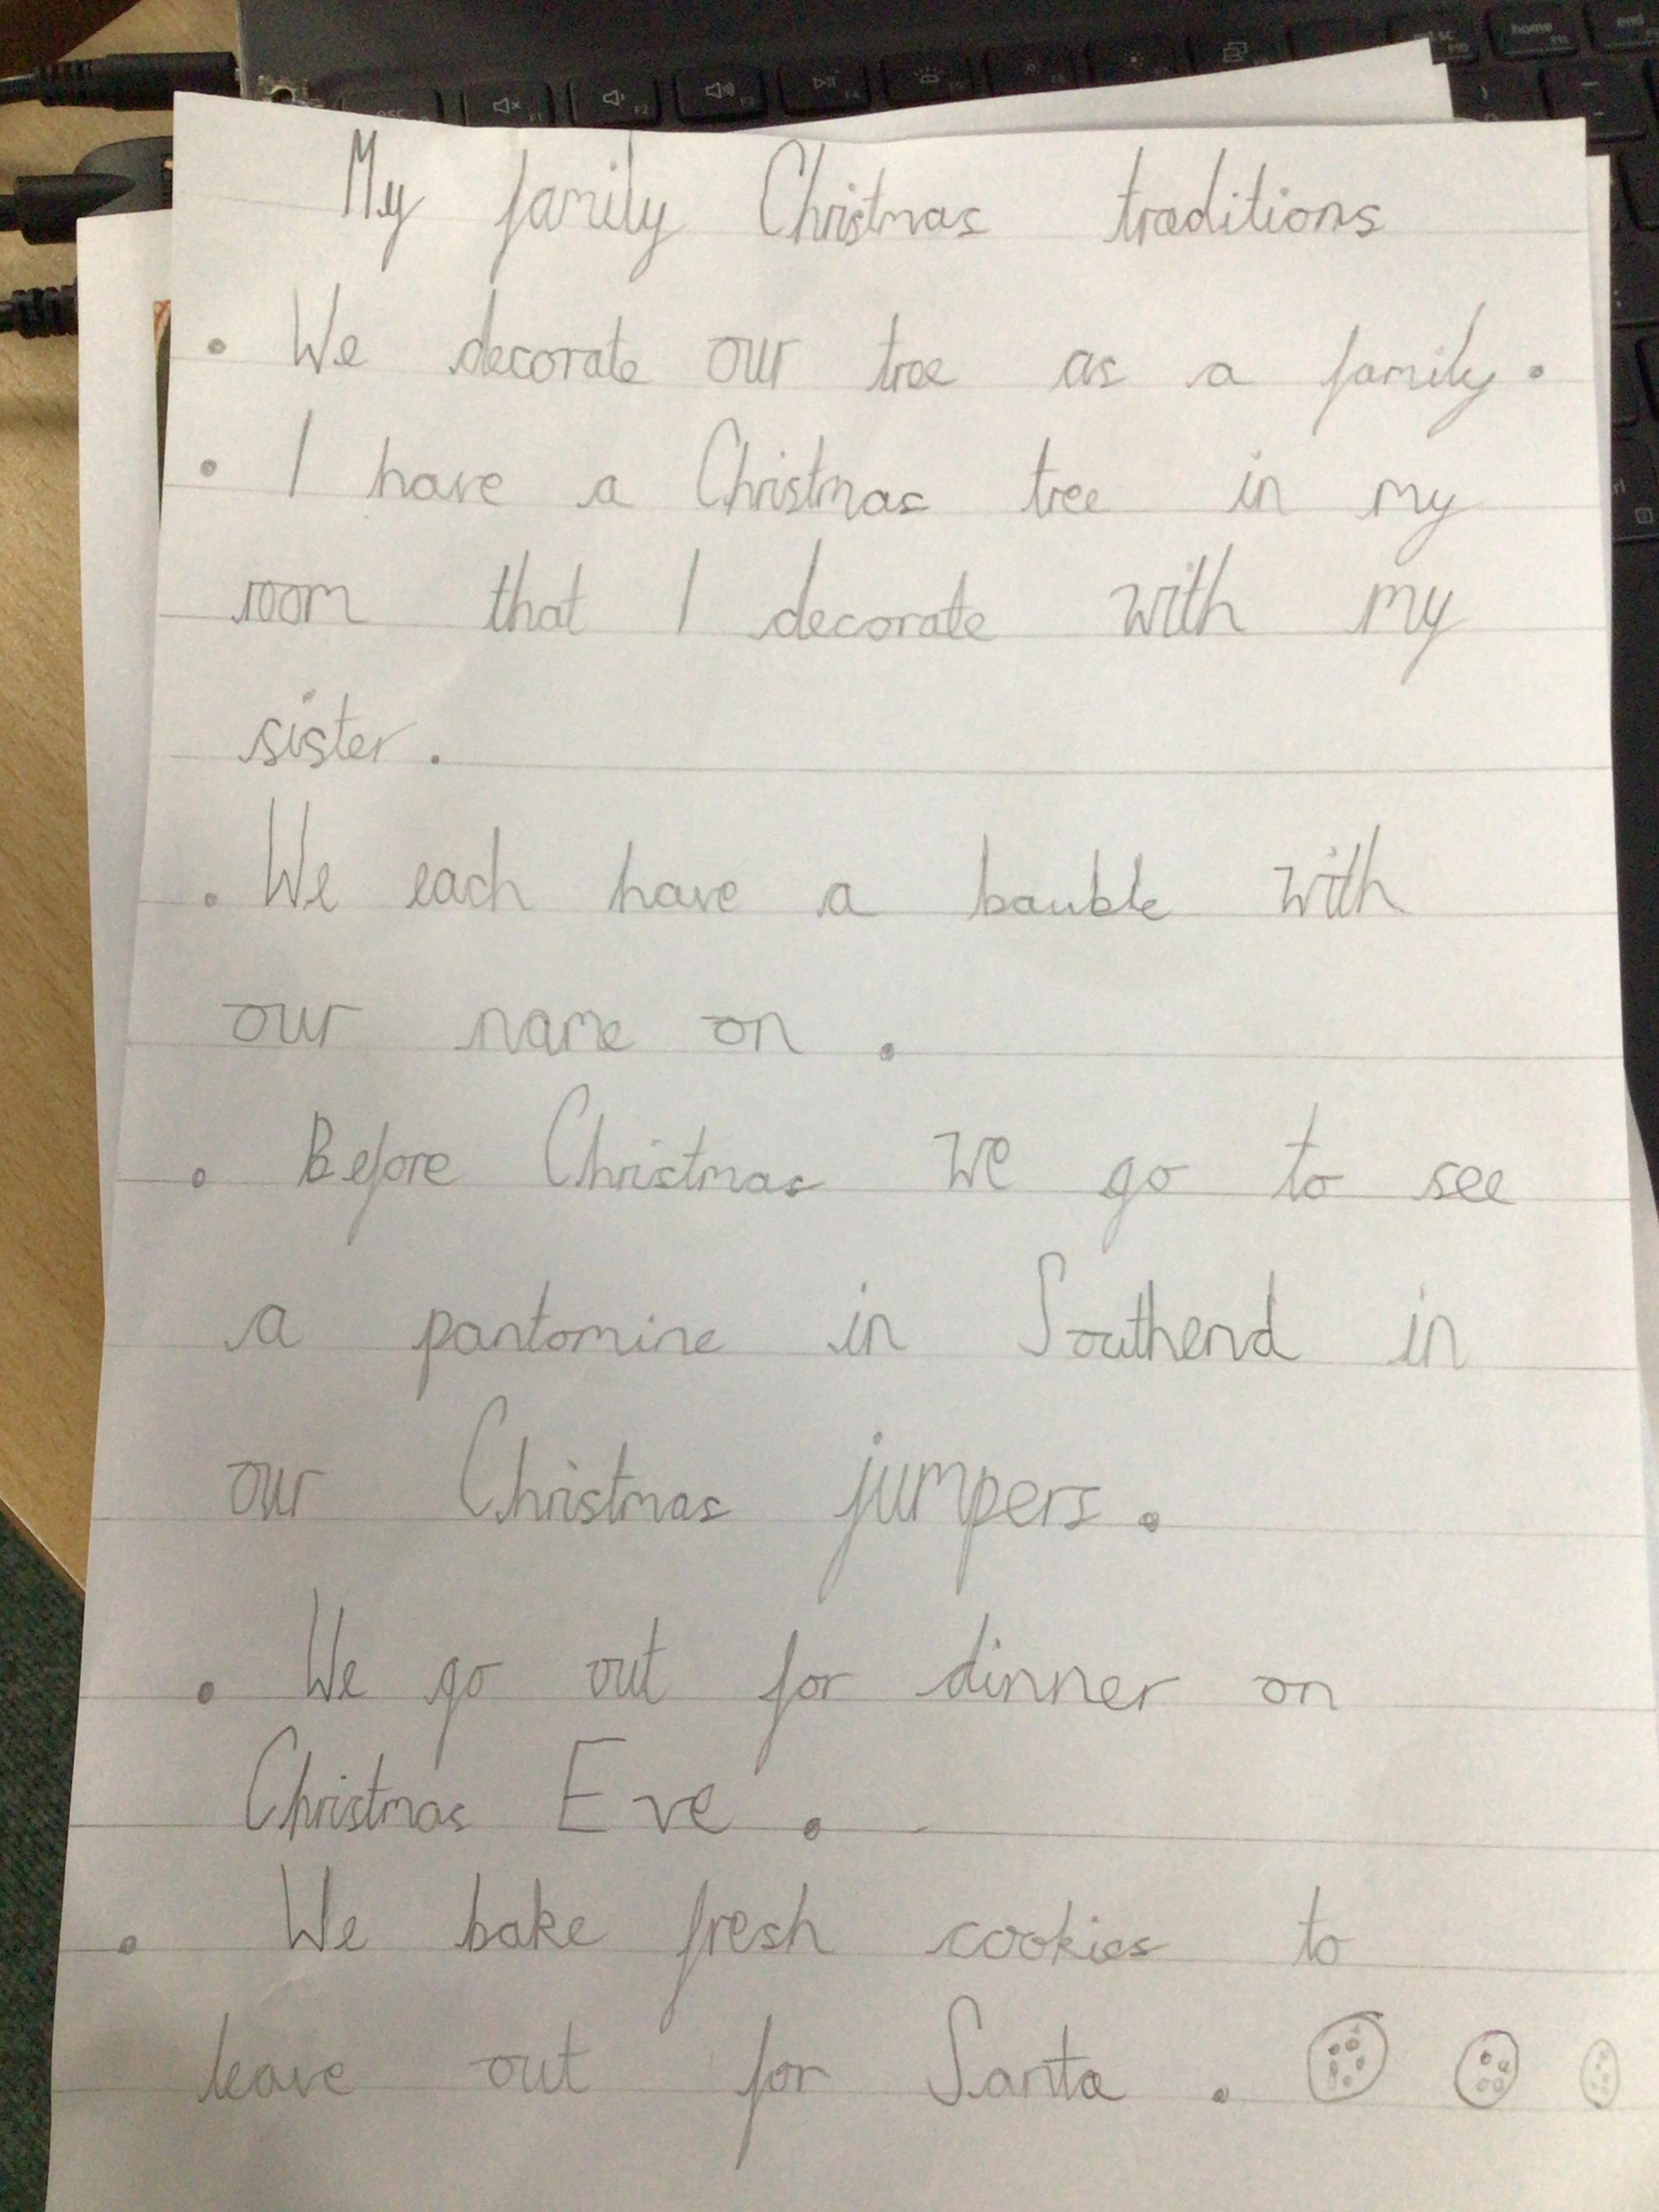 My family Christmas traditions
• We decorate our tree as a family.
• I have a Christmas tree in my
room that I decorate with my
sister.
• We each have a bauble with
our name on.
• Before Christmas we go to see
a pantomine in Southend in
our Christmas jumpers.
• We go out for dinner on
Christmas Eve.
• We bake fresh cookies to
leave out for Santa.